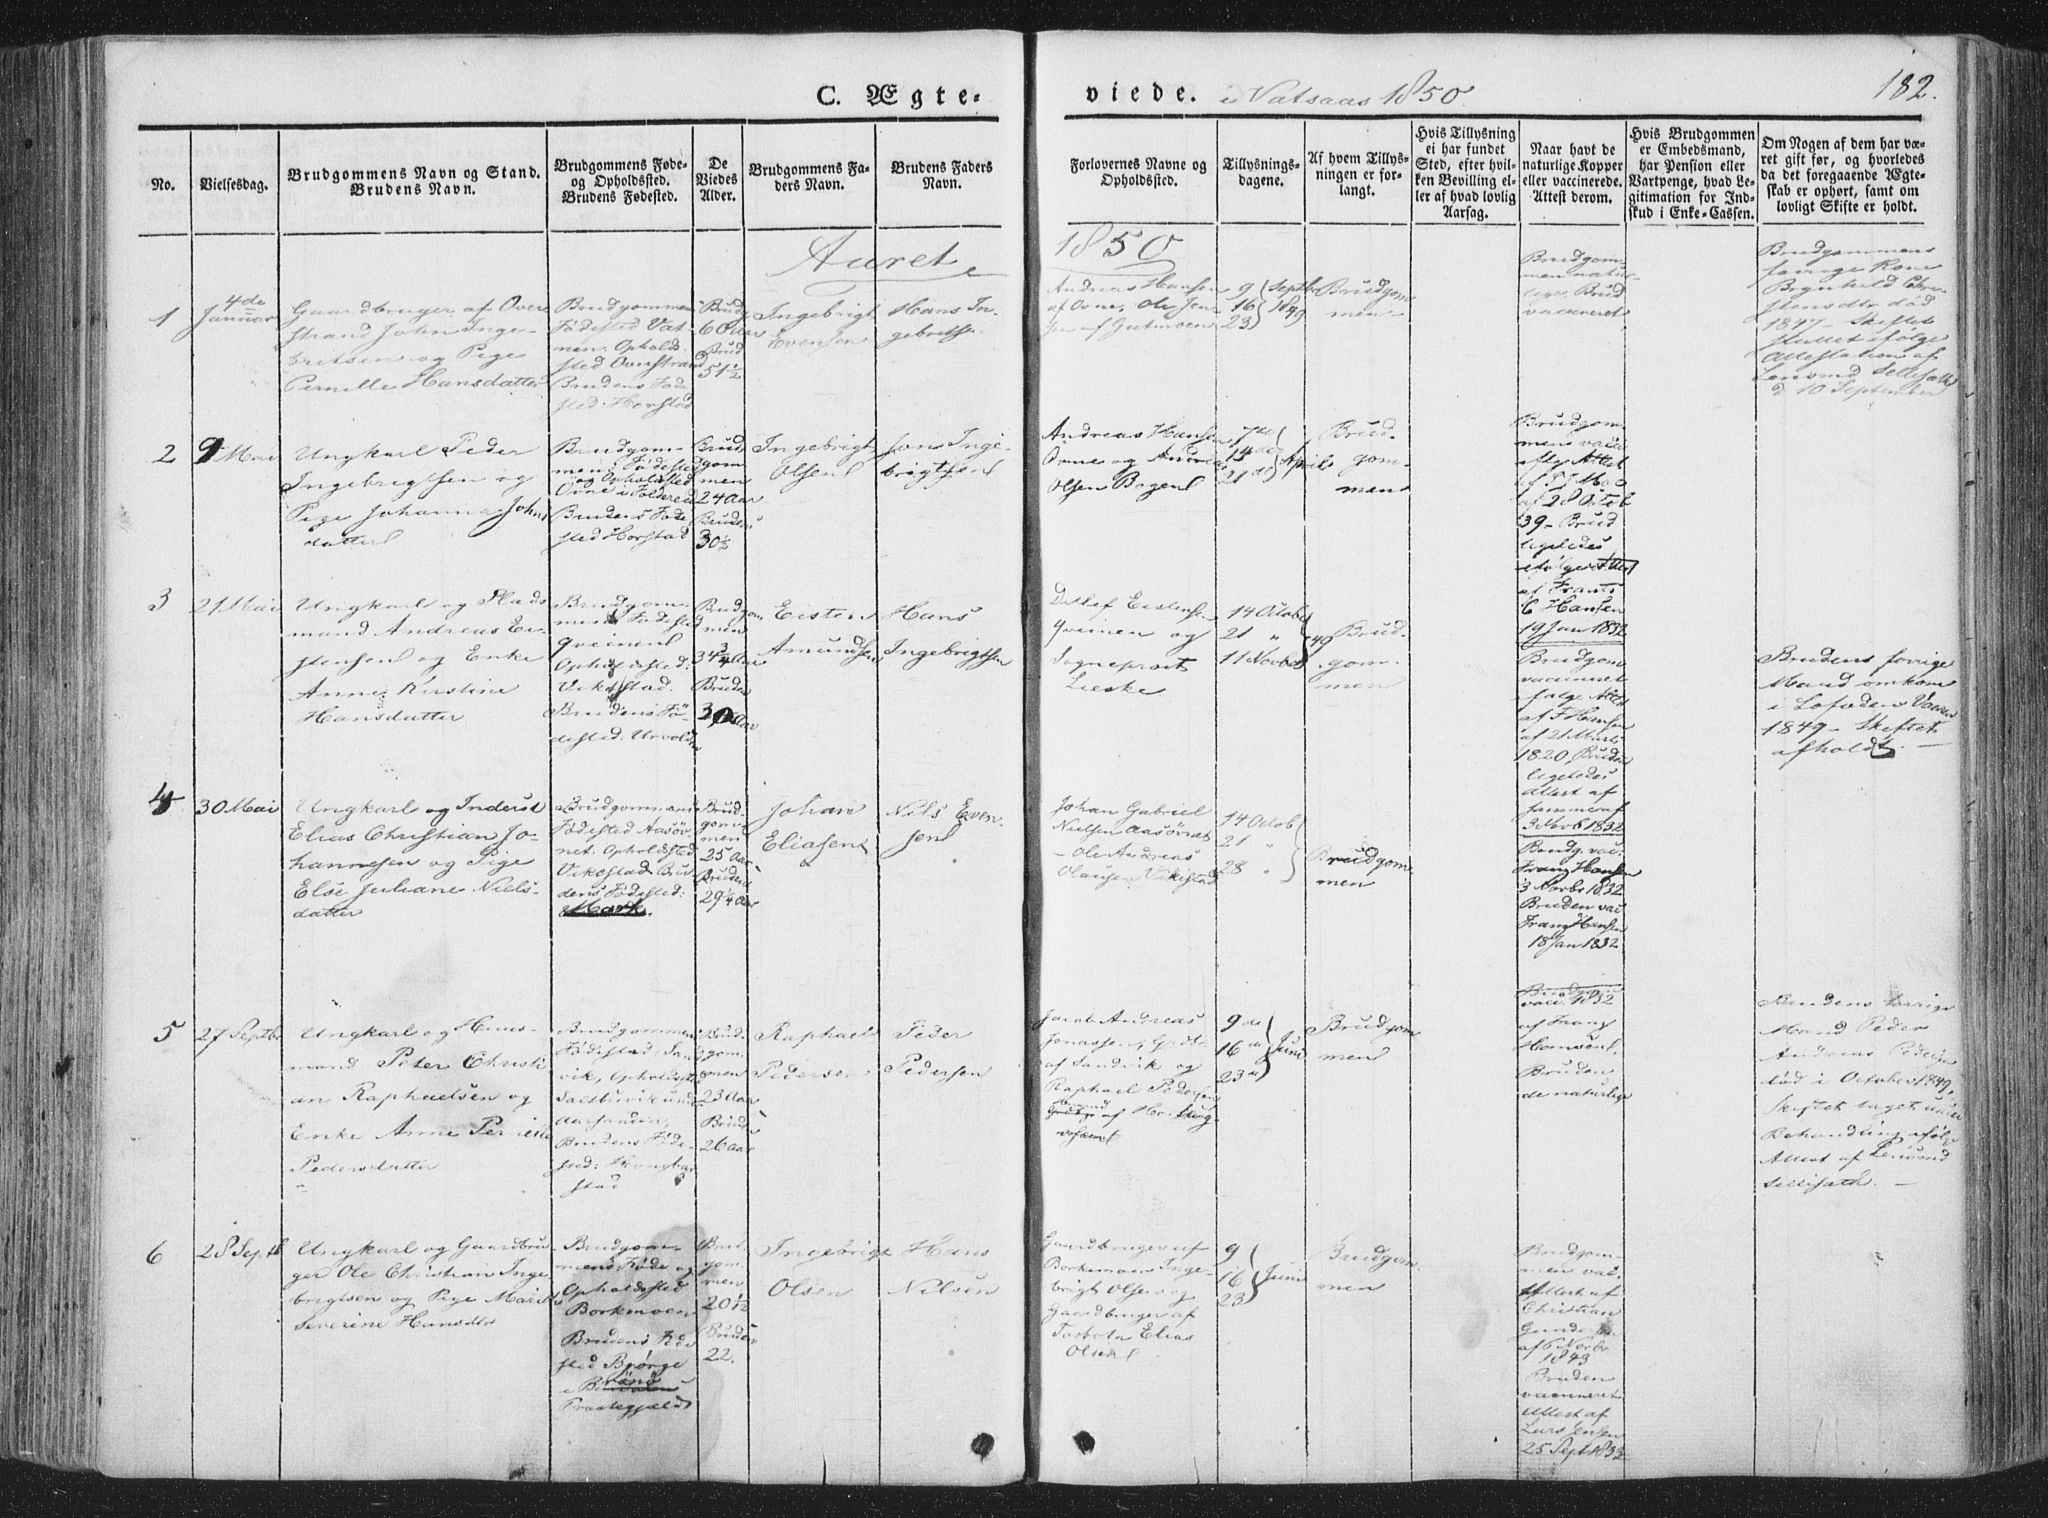 C. Ægte-
viede. i Vatsaas 1850.
182.
No.
Vielsesdag.
Brudgommens Navn og Stand.
Brudens Navn.
Brudgommens Føde-
og Opholdssted.
Brudens Fødested.
De
Viedes
Alder.
Brudgommens Fa-
ders Navn.
Brudens Faders
Navn.
Forlovernes Navne og
Opholdssted.
Tillysnings-
dagene.
Af hvem Tillys-
ningen er for-
langt.
Hvis Tillysning
ei har fundet
Sted, efter hvil-
ken Bevilling el-
ler af hvad lovlig
Aarsag.
Naar havt de
naturlige Kopper
eller vaccinerede.
Attest derom.
Hvis Brudgommen
er Embedsmand,
har Pension eller
Vartpenge, hvad Le-
gitimation for Ind-
skud i Enke-Cassen.
Om Nogen af dem har væ-
ret gift før, og hvorledes
da det foregaaende Ægte-
skab er ophørt, samt om
lovligt Skifte er holdt.
Aaret
1850
1
4de
Januar
Gaardbruger af Over
strand John Inge-
britsen og Pige
Pernille Hansdatter
Brudgommens
Fødested Vat-
nen. Ophold-
sted Ovnstrand
Brudens Føde
sted: Horstad
Brudg
60 Aar
Brud
51 1/2
Ingebrigt
Evensen
Hans In-
gebritsen
Andreas Hansen
af Ovne, Ole Jen-
sen af
9
16
23
Septbr
1849
Brudgom
men.
Brudgom-
men natur-
lige, Brud
vaccineret
Brudgommens
forrige Kone
død
1847 - Skiftet
sluttet ifølge
Attestation af
Lensmd
10 September
2
9 Mai
Ungkarl Peder
Ingebrigtsen og
Pige Johanna Johns
datter
Brudgom-
mens Fødested
og Opholdssted
Ovne i
Brudens Føde
sted Horstad
Brud
gom
men
24 Aar
Bruden
30 1/2
Ingebrigt
Olsen
Jon Inge-
brigtsen
Andreas Hansen
Ovne og Andreas
Olsen Bogen
7de
14de
21de
April
Brud-
gom-
men
Brudgom-
mens vacc
efter Attest
af
af 28 Octob
39 - Brud
ligeledes
efølge Attest
af Frants
C Hansen
19 Jan 1832
3
21 Mai
Ungkarl og Plads
mand Andreas Ei-
stensen og Enke
Anne Kirstine
Hansdatter
Brudgom-
mens Fødested
Qveinen
Opholdssted:
Vikestad.
Brudens Fø-
dested: Urvold
Brudgom
men
34 3/4 Aar
Bruden
30 Aar
Eisten
Amundsen
Hans
Ingebrigtsen
Detlef Eistensen
Qveinen og
Sogneprest
Lieske
14 Octob
21 "
11 Novbr
49
Brud-
gom-
men
Brudgom
vaccineret
ifølge Attest
af F Hansen
af 21 Marts
1820, Bruden
ligeledes
Attest af
samme af
3 Novb 1832
Brudens forrige
Mand omkom
i Lofoden Vaaren
1849 - Skiftet
afholdt. -
4
30 Mai
Ungkarl og Inderst
Elias Christian Jo-
hannesen og Pige
Else Juliane Niels-
datter
Brudgommens
Fødested Aasøv-
net. Opholdssted
Vikestad Bru-
dens Fødested:
Mark.
Brud-
gom-
men
25 Aar
Bruden
29 1/4 Aar
Johan
Eliasen
Nils Even-
sen
Johan Gabriel
Nielsen Aasövnet
- Ole Andreas
Olausen Vikestad
14 Octob
21 "
28 "
Brudgom
men
Brudg. vac.
Franz Hansen
3 Novbr 1832
Bruden vac
Franz Hansen
18 Jan 1832
5
27 Septbr
Ungkarl og Huus-
mand Peter Christi
an Raphaelsen og
Enke Anne Pernille
Pedersdatter
Brudgommens
Fødested: San
vik, Opholdssted
Brudens Føde-
sted:
stad
Brud-
gom-
men
23 Aar
Bruden
26 Aar
Raphael
Pedersen
Peder
Pedersen
Jacob Andreas
Jonassen,
af Sandvik og
Raphael Pedersen
af
9de
16de
23de
Juni
Brudgom
men
Brudgom
vacc. 1832
af Franz
Hansen,
Bruden
de naturlige
Brudens forrige
Mand Peder
Andreas Pedersen
død i October 1849,
Skiftet taget under
Behandling ifølge
Attest af Lensmnd
6
28 Septb
Ungkarl og Gaardbru-
ger Ole Christian Inge
brigtsen og Pige Marit
Severine Hansdtr
Brudgom-
mens Føde og
Opholdssted
Borkemoen
Brudens Føde
sted Bjørge
i Bindalen
Præstegjeld
Brud-
gom-
men
20 1/2
Bruden
22.
Ingebrigt
Olsen
Hans
Nilsen
Gaardbruger af
Borkemoen Inge-
brigt Olsen og
Gaardbruger af
Tosbotn Elias
Olsen
9
16
23
Juni
Brudgom
men
Brudgom-
men vac.
Attest af
Christian
af 6 Novbr
1843
Bruden
vaccineret
Attest af
Lars Jensen
25 Sept 1832